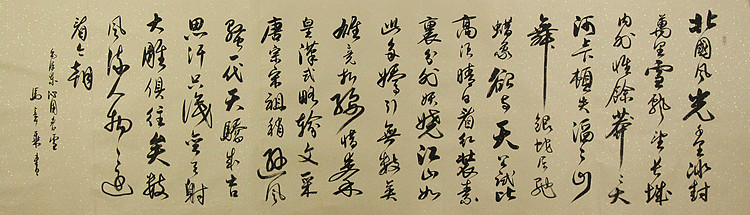 北國風光千里冰封
萬里雪飄望長城
内外惟餘莽々大
河上下頓失滔々山
舞銀蛇原馳
蠟象欲與天公試比
高須晴日看紅裝素
裹分外妖嬈江山如
此多嬌引無數英
雄競折腰惜秦
皇漢武略輸文采
唐宗宋祖稍遜風
騷一代天驕成吉
思汗只識彎弓射
大雕俱往矣數
風流人物還
看今朝
毛澤東沁園春雪
馬